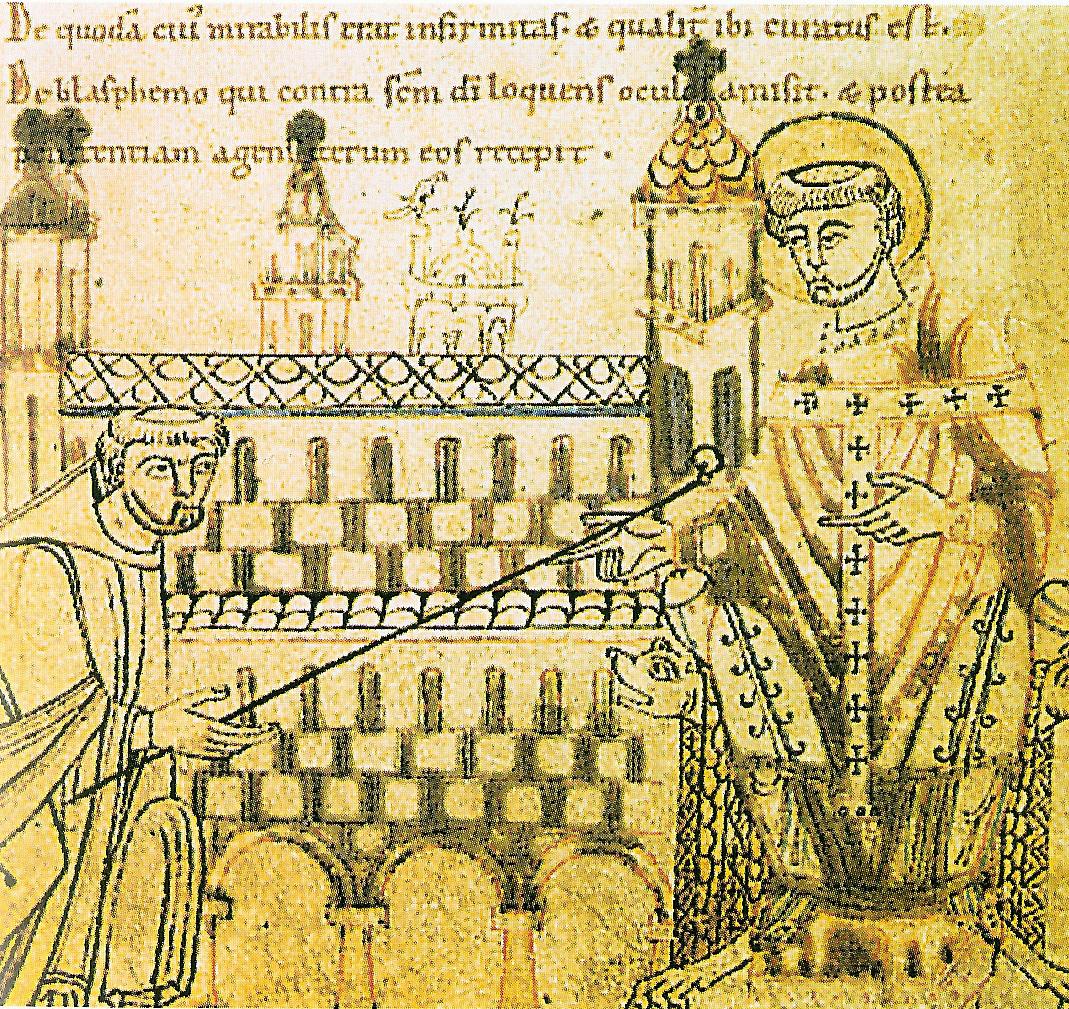 De quodā cui' mirabilis erat infirmitas· & qualit̄ ibi curatus est·
De blasphemo qui contra sc̄m dī loquens ocul amisit· & postea
penitentiam agens iterum eos recepit·